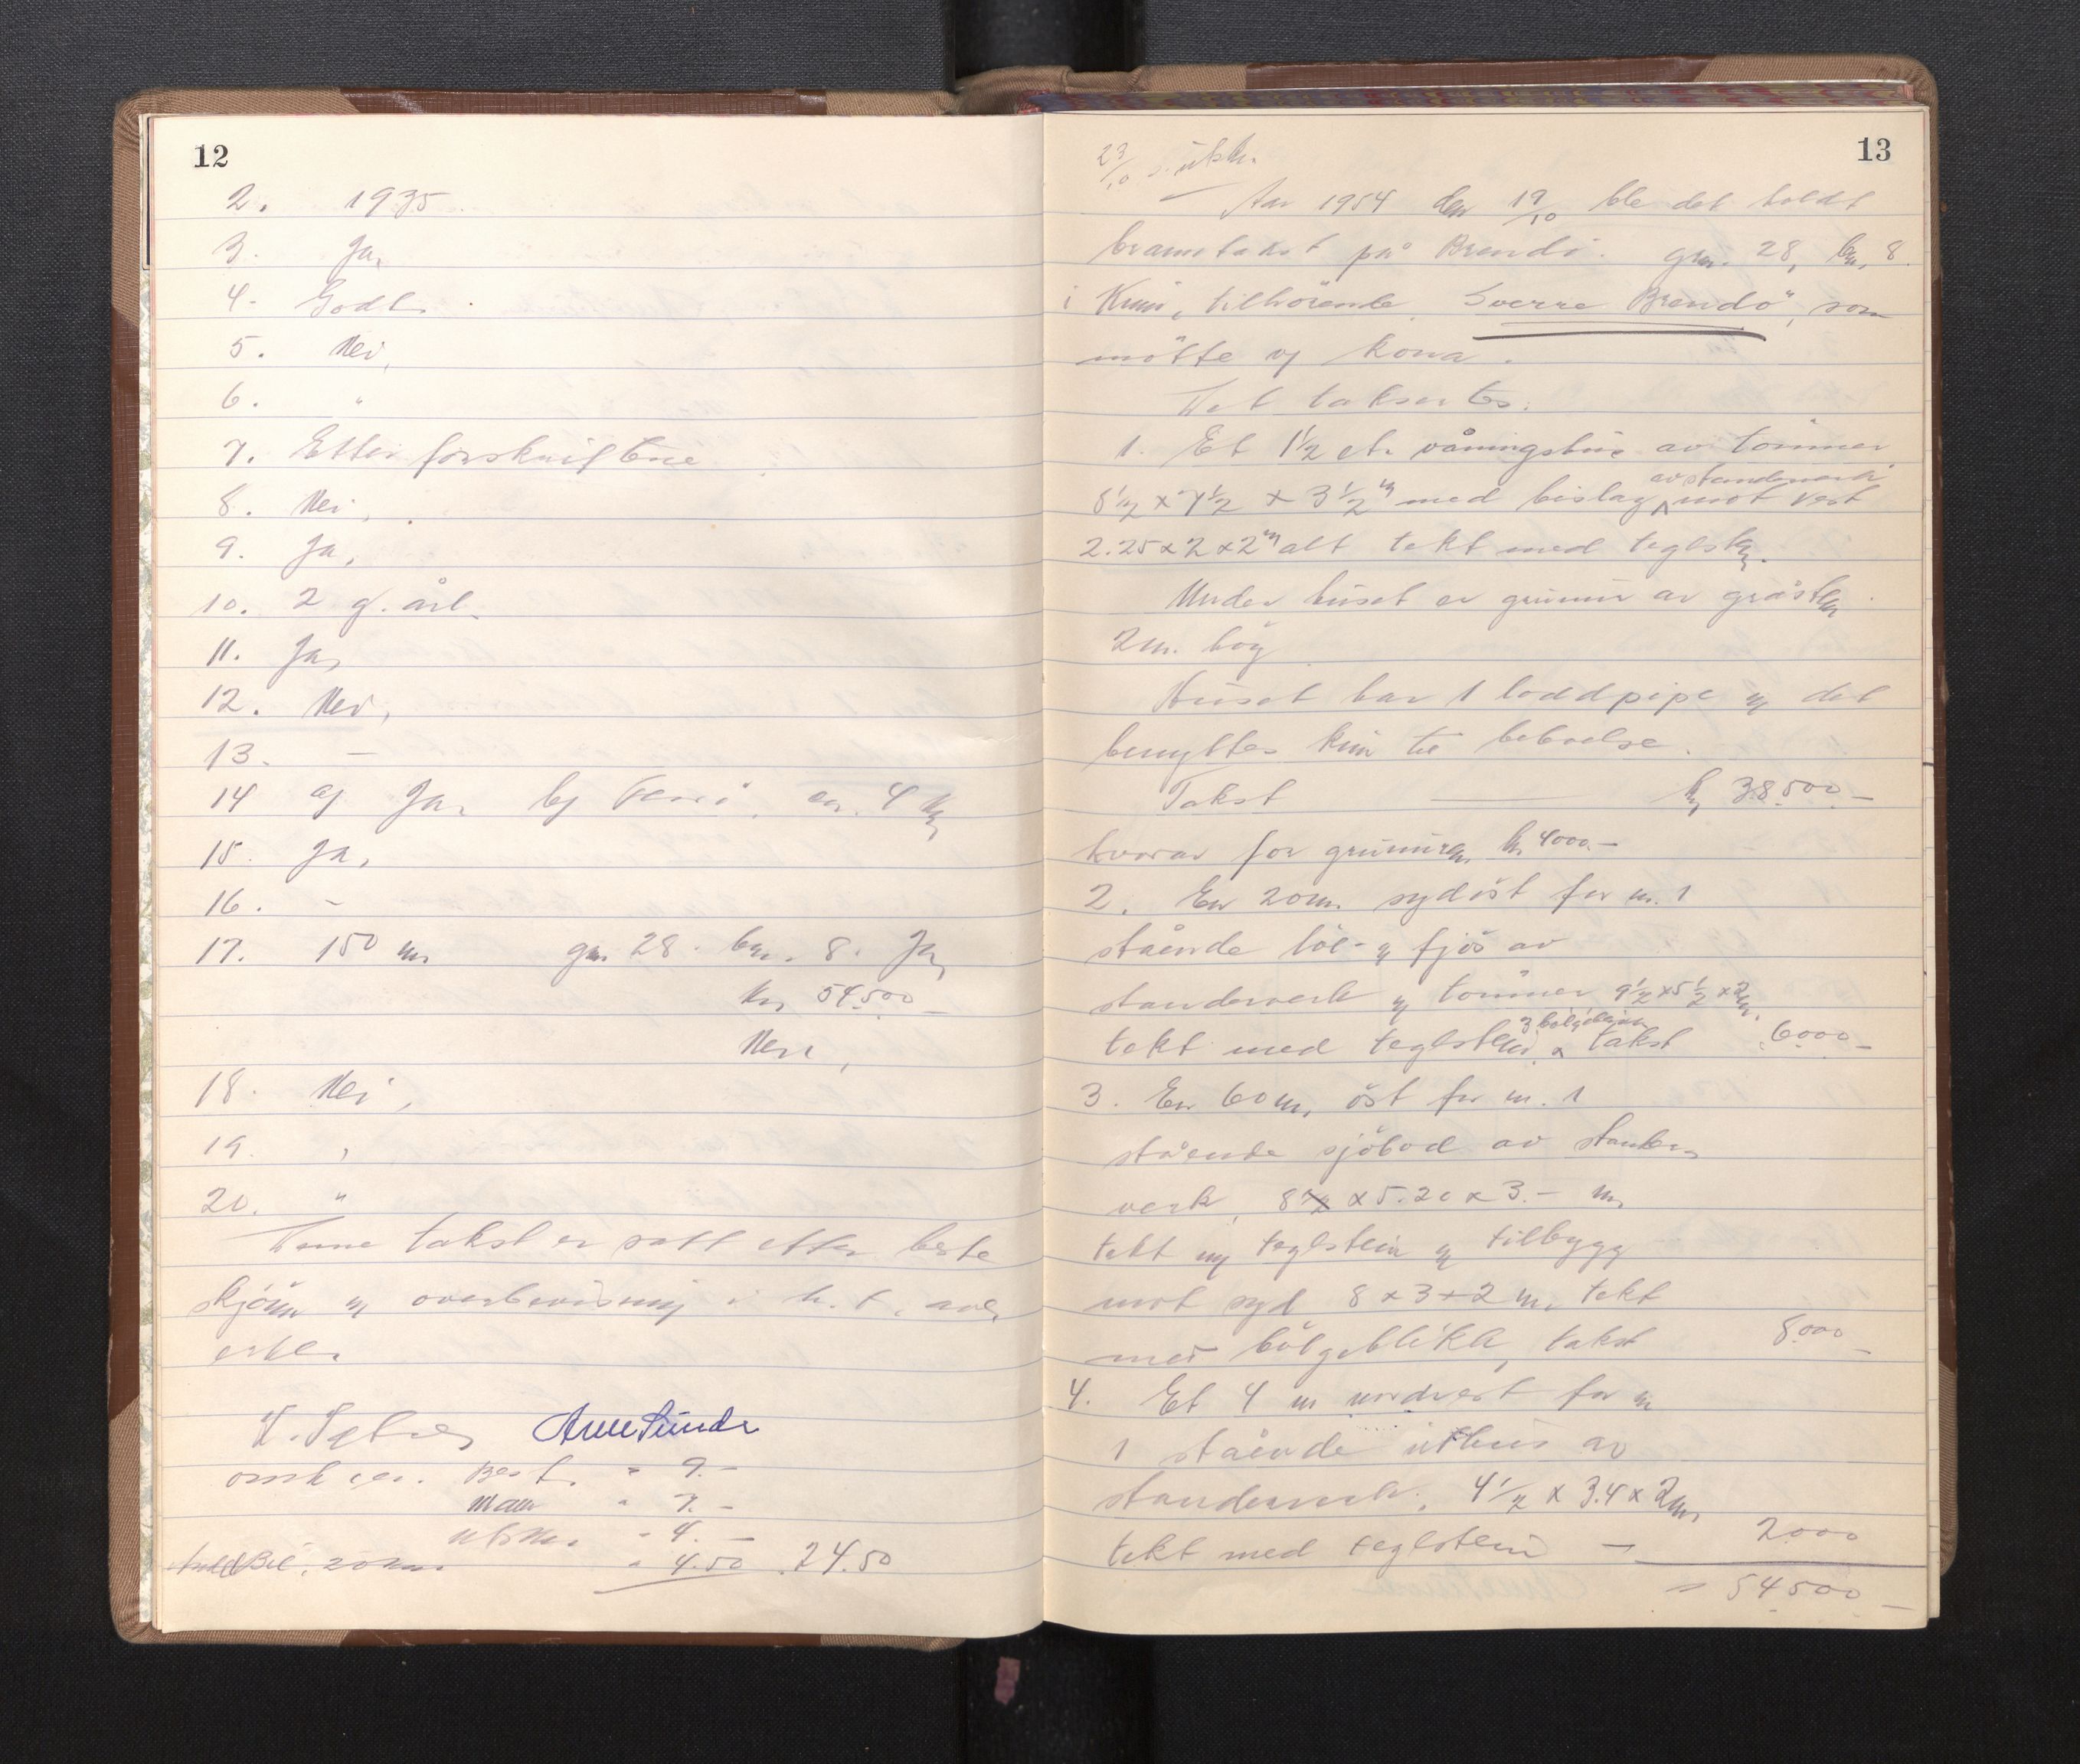 12
2. 1935
3. Ja,
4. Godt.
5. Nei,
6. "
7. Etter forskriftene
8. Nei,
9. Ja,
10. 2 g. årl.
11. Ja,
12. Nei,
13. —
14 a) Ja, b) ca. 4 km
15. Ja,
16. -
17. 150 m gn. 28. bn. 8. Ja,
kr. 54.500 –
Nei,
18. Nei,
19. "
20. "
Denne takst er satt etter beste
skjönn og overbevisning i h. t. avl.
erkl.
Arne Sunde
Best. " 9.–
Mann " 7.–
Utskr. " 4.–
Bil, 20 km. " 4.50 24.50
13
23/10 s. utskr.
Aar 1954 den 19/10 ble det holdt
branntakst på Brendö. gnr. 28, bn. 8.
i Kinn, tilhörende Sverre Brendö", som
mötte og kona.
Det taksertes.
1. Et 1½ et. våningshus av tömmer
8½ x 7½ x 3½ m med bislag av standerverk mot vest
2.25 x 2 x 2 m alt tekt med teglsten.
Under huset er grunnur av gråsten
2 m. hög
Huset har 1 loddpipe og det
benyttes kun til beboelse.
Takst — kr. 38.500.–
hvorav for grunnuren kr. 4000.–
2. En 20 m. sydöst for nr. 1
stående löe- og fjös av
standerverk og tömmer 9½ x 5½ x 2 m.
tekt med teglstein og bölgeblikk takst 6.000 –
3. En 60 m. öst for nr. 1
stående sjöbod av stander-
verk, 8 x 5.20 x 3.– m.
tekt m/ teglstein og tilbygg
mot syd 8 x 3 x 2 m. tekt
med bölgeblikk, takst 8.000 –
4. Et 4 m nordvest for nr
1 stående uthus av
standerverk. 4½ x 3.4 x 2 m.
tekt med teglstein — 2000
= 54.500 –